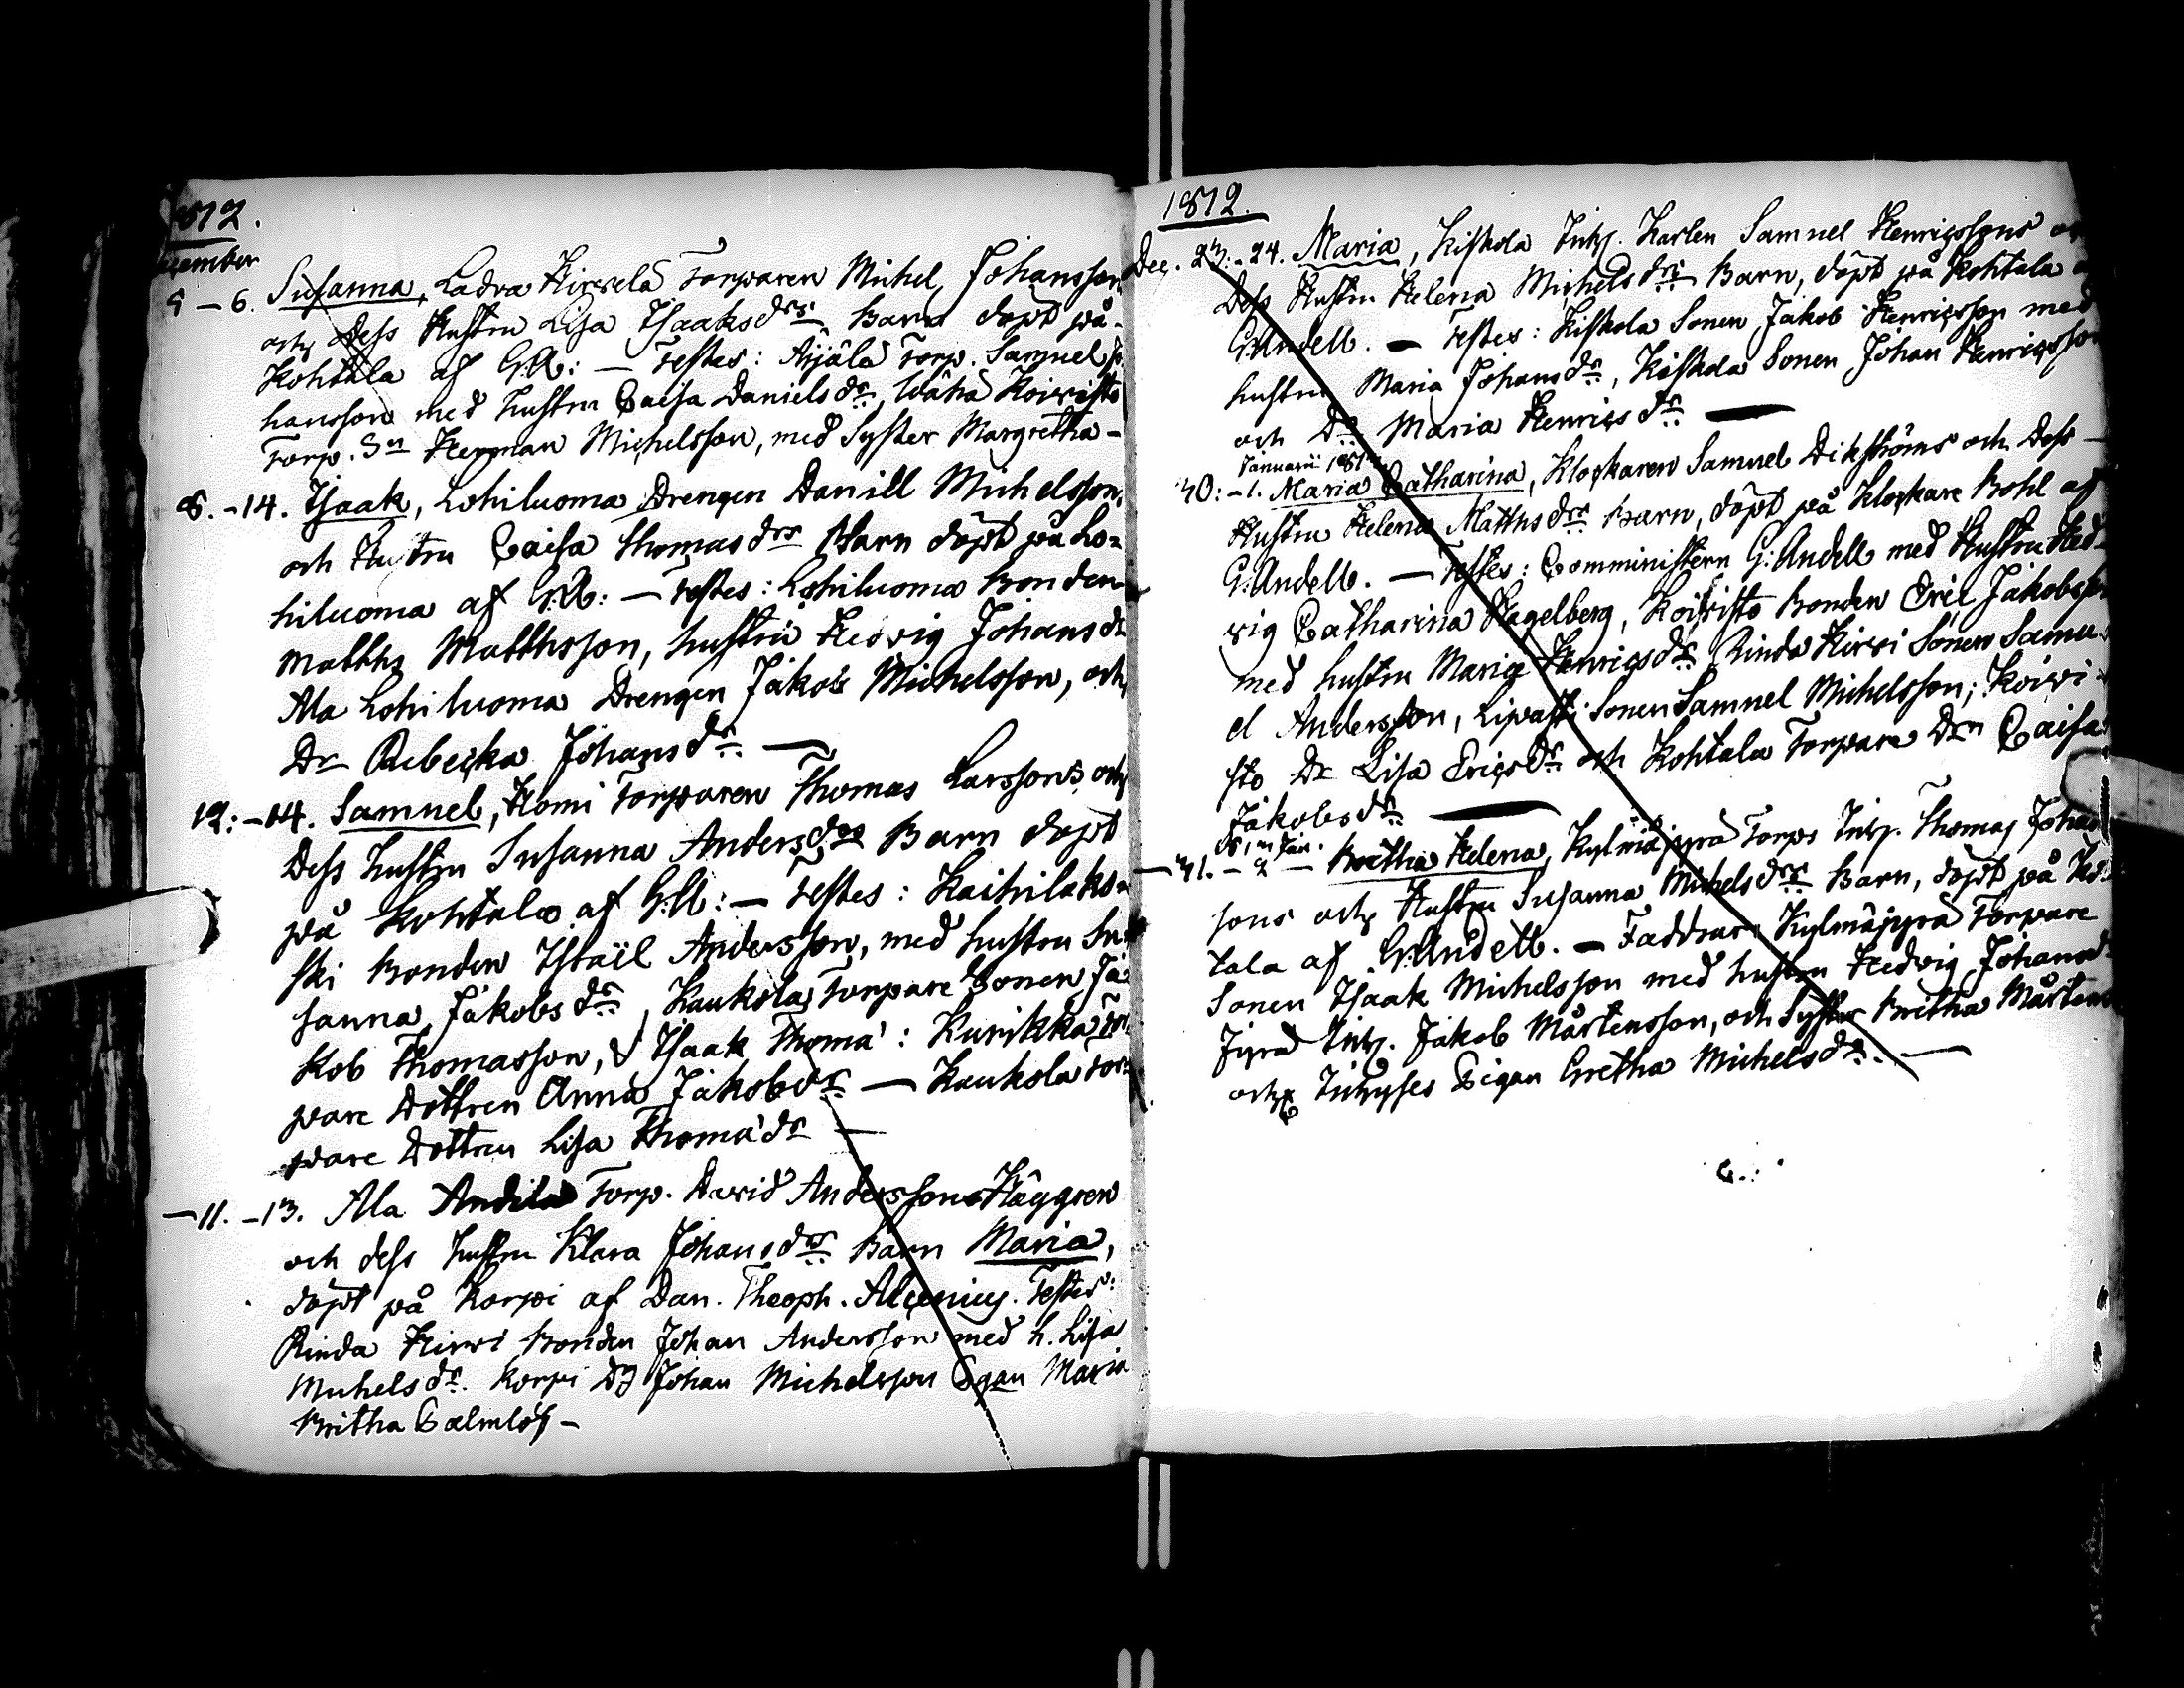 1812.
cember
5 - 6. Susanna, Ladva Hirvelä Torparen Michel Johansson
och Dess Hustru Lisa Isaaksdrs Barn döpt på
Kohtala af G.A: — Testes: Äijälä Torp. Samuel Jo
hansson med hustru Caisa Danielsdr, Wähä Koivisto
Torp. Sn Herman Michelsson, med Syster Margretha -
8. - 14. Isaak, Lohiluoma Drengen Daniel Michelsson,
och Hustru Caisa Thomasdrs Barn döpt på Lo-
hiluoma af G.A: — Testes: Lohiluoma Bonden
Matths Matthsson, hustru Hedvig Johansdr
Ala Lohiluoma Drengen Jakob Michelsson, och
Dr Rebecka Johansdr —
12: - 14. Samuel, Homi Torparen Thomas Larssons och
Dess hustru Susanna Andersdrs Barn döpt
på Kohtala af G.A: — Testes: Kaihilaks-
ski Bonden Israël Andersson, med hustru Su
sanna Jakobsdr, Kaukola Torpare Sonen Ja
kob Thomasson, & Isaak Thoma': Kurikka Tor
pare Dottren Anna Jakobsdr — Kaukola Tor
pare Dottren Lisa Thoma'dr —
— 11. - 13. Ala Andila Torp. David Anderssons Häggren
och dess hustru Klara Johansdrs Barn Maria,
döpt på Korpi af Dan. Theoph. Alcenius. Testes:
Rinda Hirvi Bonden Johan Andersson med h. Lisa
Michelsdr. Korpi Dg Johan Michelsson Pgan Maria
Britha Palmlöf -
1812.
Dec. 23: - 24. Maria, Kiskola Inhs. Karlen Samuel Henricssons och
Dess Hustru Helena Michelsdrs Barn, döpt på Kohtala a
G: Andell. — Testes: Kiskola Sonen Jakob Henricsson med
hustru Maria Johansdr, Kiskola Sonen Johan Henricsson
och Dr Maria Henricsdr —
Januarii 1813
30: - 1. Maria Catharina, Klockaren Samuel Dikströms och Dess
Hustru Helena Matthsdrs Barn, döpt på Klockare Bohl af
G: Andell. — Testes: Comministern G: Andell med Hustru Hed-
vig Catharina Hagelberg, Koivisto Bonden Eric Jakobsson
med hustru Maria Henricsdr Rinda Hirvi Sonen Samu-
el Andersson, Lipasti Sonen Samuel Michelsson; Koivi-
sto Dr Lisa Ericsdr och Kohtala Torpare Drn Caisa
Jakobsdr —
d. 1, m Jan.
— 31. - 2 — Britha Helena, Kylmäjyrä Torps Inhs. Thomas Johans
sons och Hustru Susanna Michelsdrs Barn, döpt på Koh
tala af G: Andell. — Faddrar: Kylmäjyrä Torpare
Sonen Isaak Michelsson med hustru Hedvig Johansd
Jyrä Inhs. Jakob Mårtensson, och Syster Britha Mårtens
och Inhyses Pigan Gretha Michelsdr. —